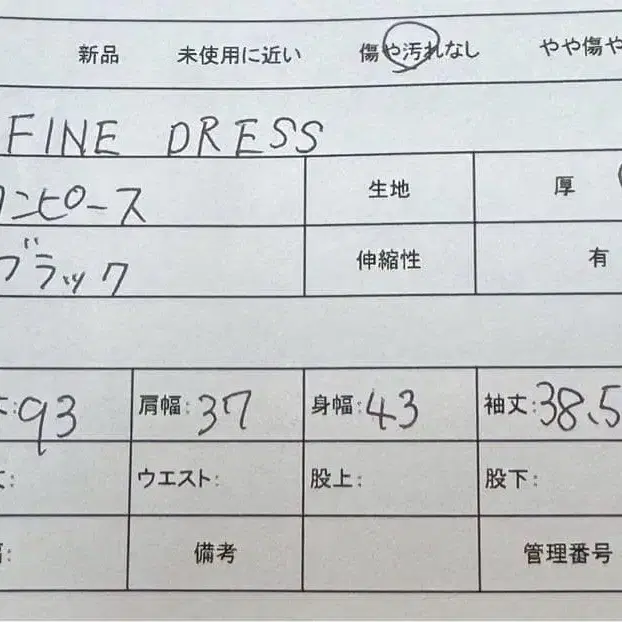 新品 未使用に近い 傷や汚れなし やや傷や
FINE DRESS
ワンピース 生地 厚
ブラック 伸縮性 有
丈:93 肩幅:37 身幅:43 袖丈:38.5
丈: ウエスト: 股上: 股下:
幅: 備考 管理番号